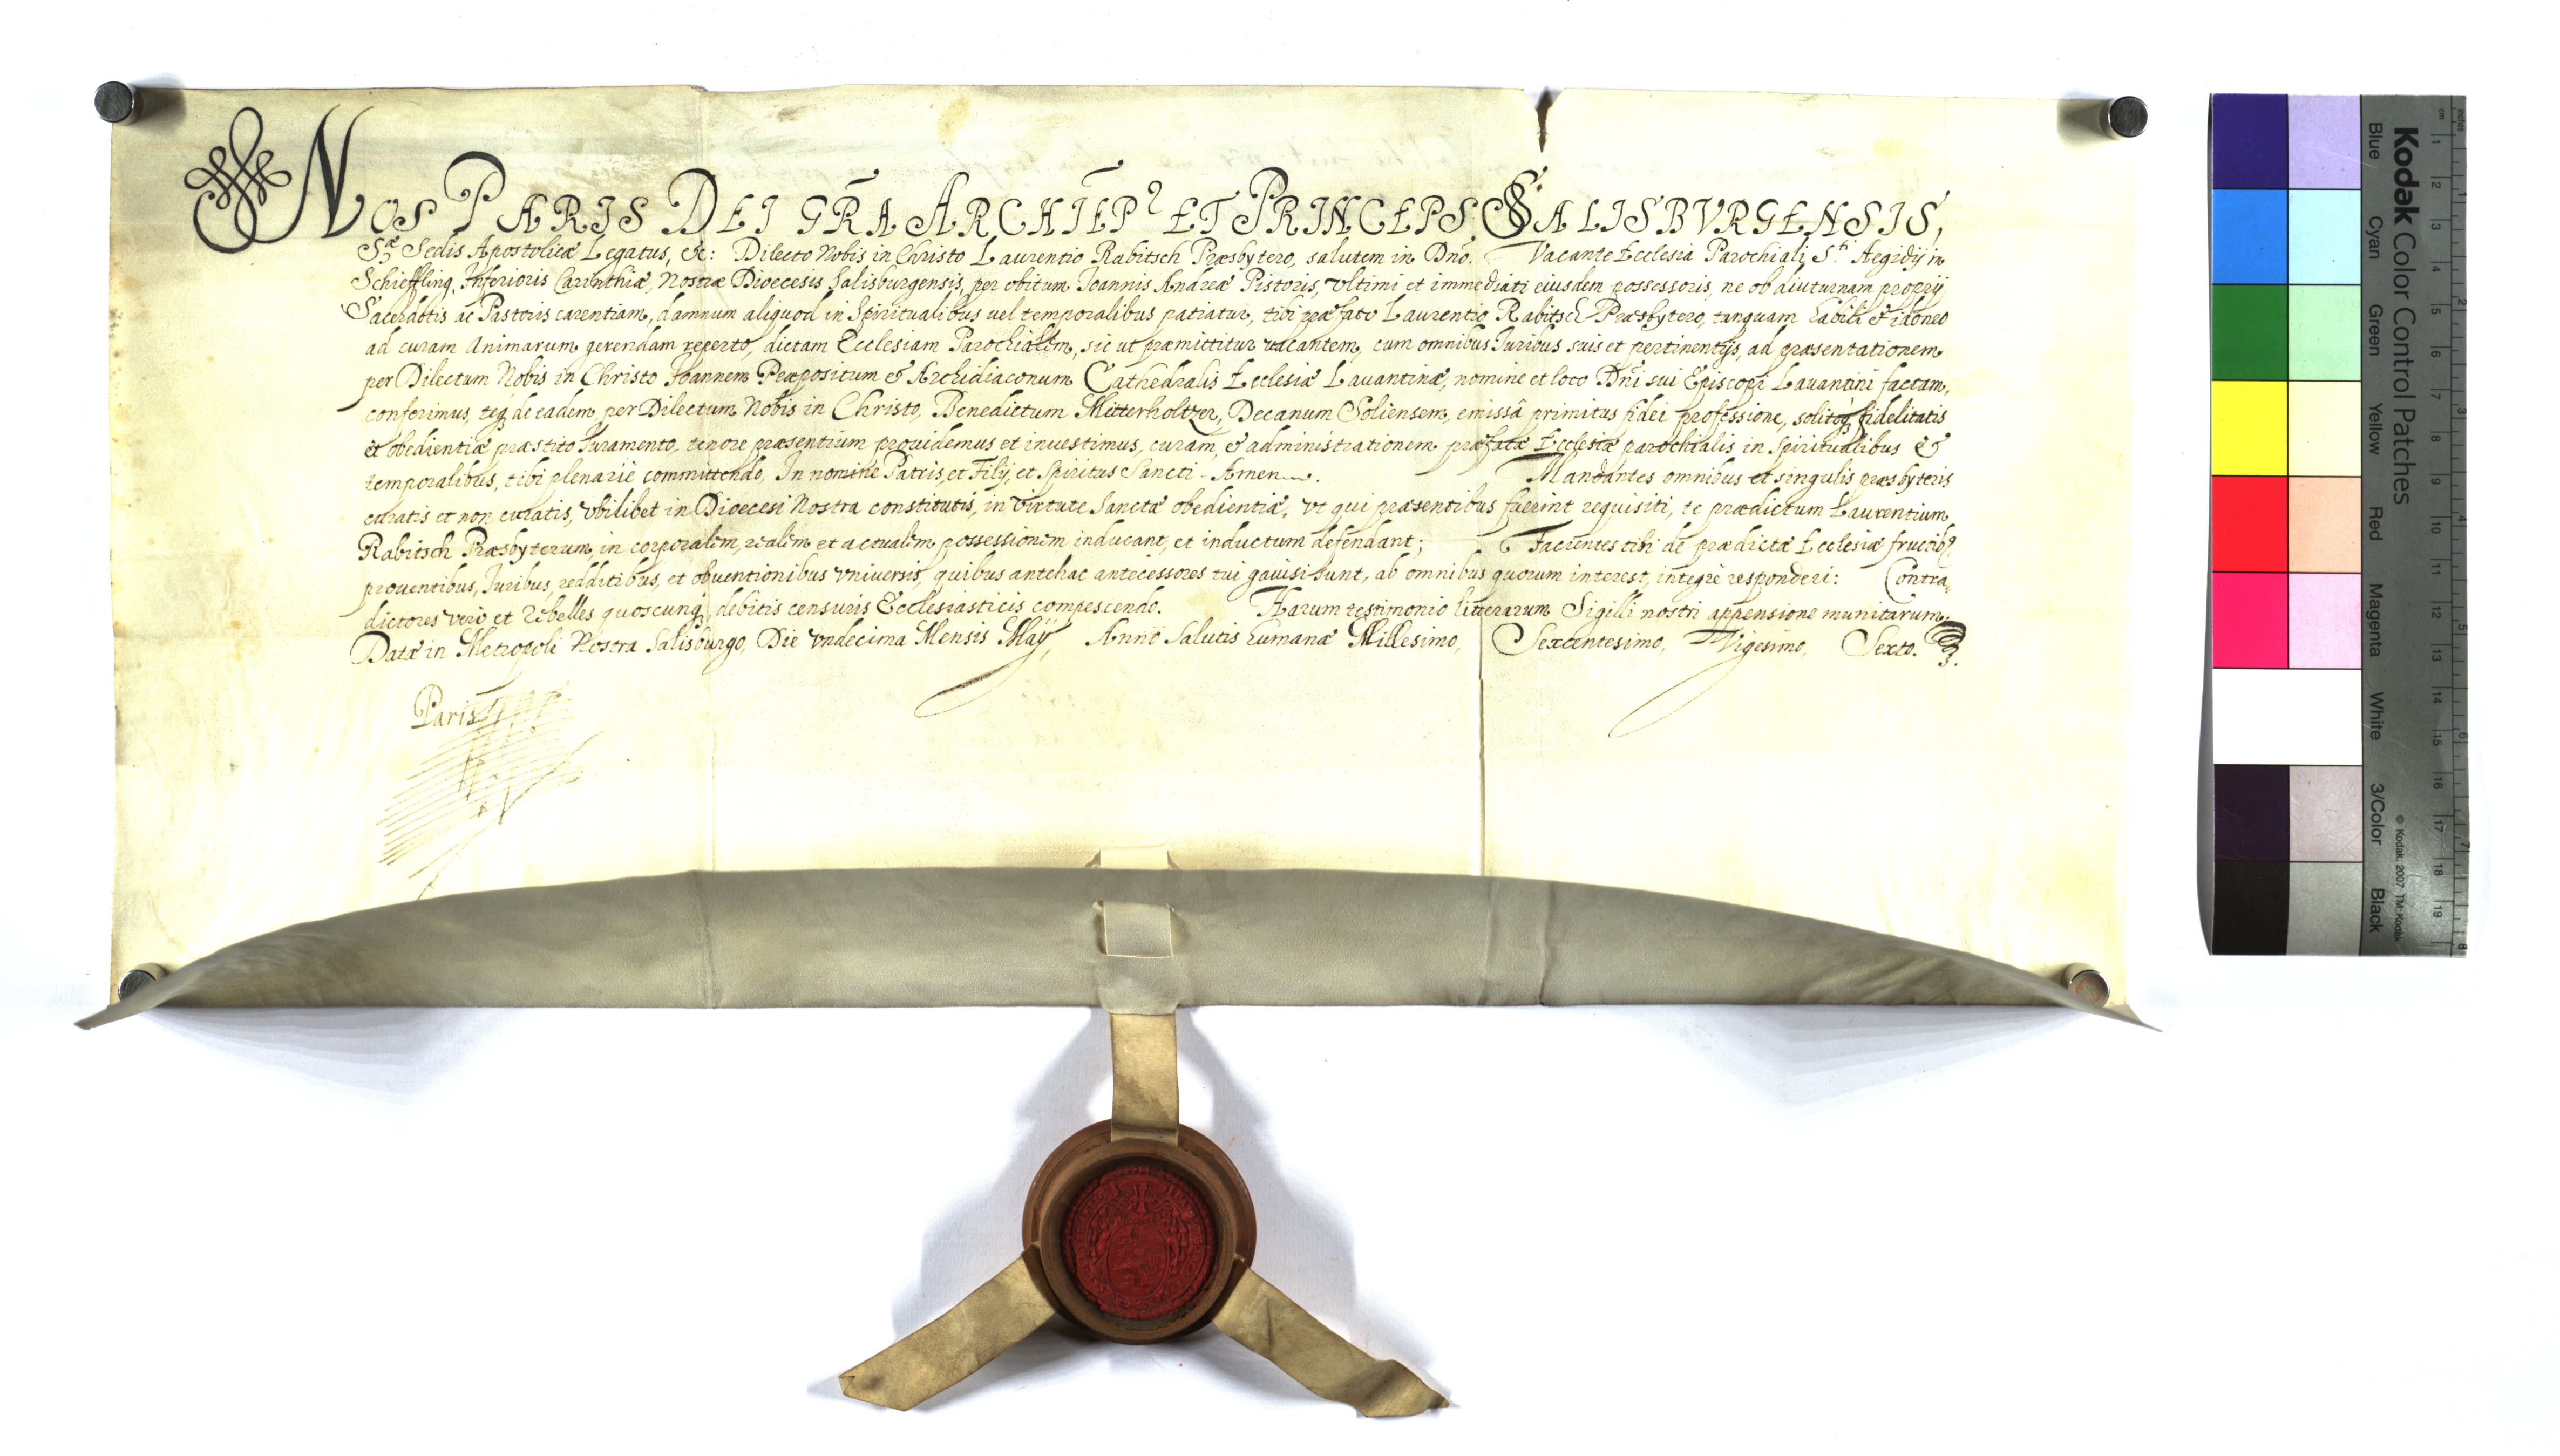 NOS PARIS DEI GRÃA ARCHIEP⁹ ET PRINCEPS SALISBVRGENSIS,
Sæ Sedis Apostolicæ Legatus, &c: Dilecto Nobis in Christo Laurentio Rabitsch Præsbytero, salutem in Dño. Vacante Ecclesia Parochiali S.ti Aegidij in
Schieffling, Inferioris Carinthiæ, Nostræ Dioecesis Salisburgensis, per obitum Joannis Andreæ Pistoris, vltimi et immediati eiusdem possessoris, ne ob diuturnam proprij
Sacerdotis ac Pastoris carentiam, damnum aliquod in Spiritualibus uel temporalibus patiatur, tibi præfato Laurentio Rabitsch Præsbytero, tanquam habili & idoneo
ad curam Animarum gerendam reperto, dictam Ecclesiam Parochialem, sic ut præmittitur vacantem, cum omnibus Juribus suis et pertinentijs, ad præsentationem
per Dilectum Nobis in Christo Joannem Præpositum & Archidiaconum Cathedralis Ecclesiæ Lauantinæ, nomine et loco Dñi sui Episcopi Lauantini factam,
conferimus, teq₃ de eadem per Dilectum Nobis in Christo, Benedictum Mitterholtzer, Decanum Soliensem, emissâ primitus fidei professione, solitoq₃ fidelitatis
et obedientiæ præstito Juramento, tenore præsentium prouidemus et inuestimus, curam, & administrationem præfatæ Ecclesiæ parochialis in Spiritualibus &
temporalibus, tibi plenariè committendo, In nomine Patris, et Filij, et Spiritus Sancti - Amen. Mandantes omnibus et singulis præsbyteris
curatis et non curatis, vbilibet in Dioecesi Nostra constitutis, in virtute Sanctæ obedientiæ, vt qui præsentibus fuerint requisiti, te prædictum Laurentium
Rabitsch Præsbyterum, in corporalem, realem et actualem possessionem inducant, et inductum defendant; Facientes tibi de prædictæ Ecclesiæ fructib⁹
prouentibus, Juribus, redditibus, et obuentionibus vniuersis, quibus antehac antecessores tui gauisi sunt, ab omnibus quorum interest, integrè responderi: Contra,
dictores verò et rebelles quoscunq₃ debitis censuris Ecclesiasticis compescendo. Harum testimonio litterarum Sigilli nostri appensione munitarum.
Datæ in Metropoli Nostra Salisburgo, Die vndecima Mensis Maÿ, Anno Salutis humanæ Millesimo, Sexcentesimo, Vigesimo, Sexto.
Paris
Kodak Color Control Patches
Blue Cyan Green Yellow Red Magenta White 3/Color Black
© Kodak, 2007 TM: Kodak
inches
cm
1 2 3 4 5 6 7 8 9 10 11 12 13 14 15 16 17 18 19
1 2 3 4 5 6 7 8